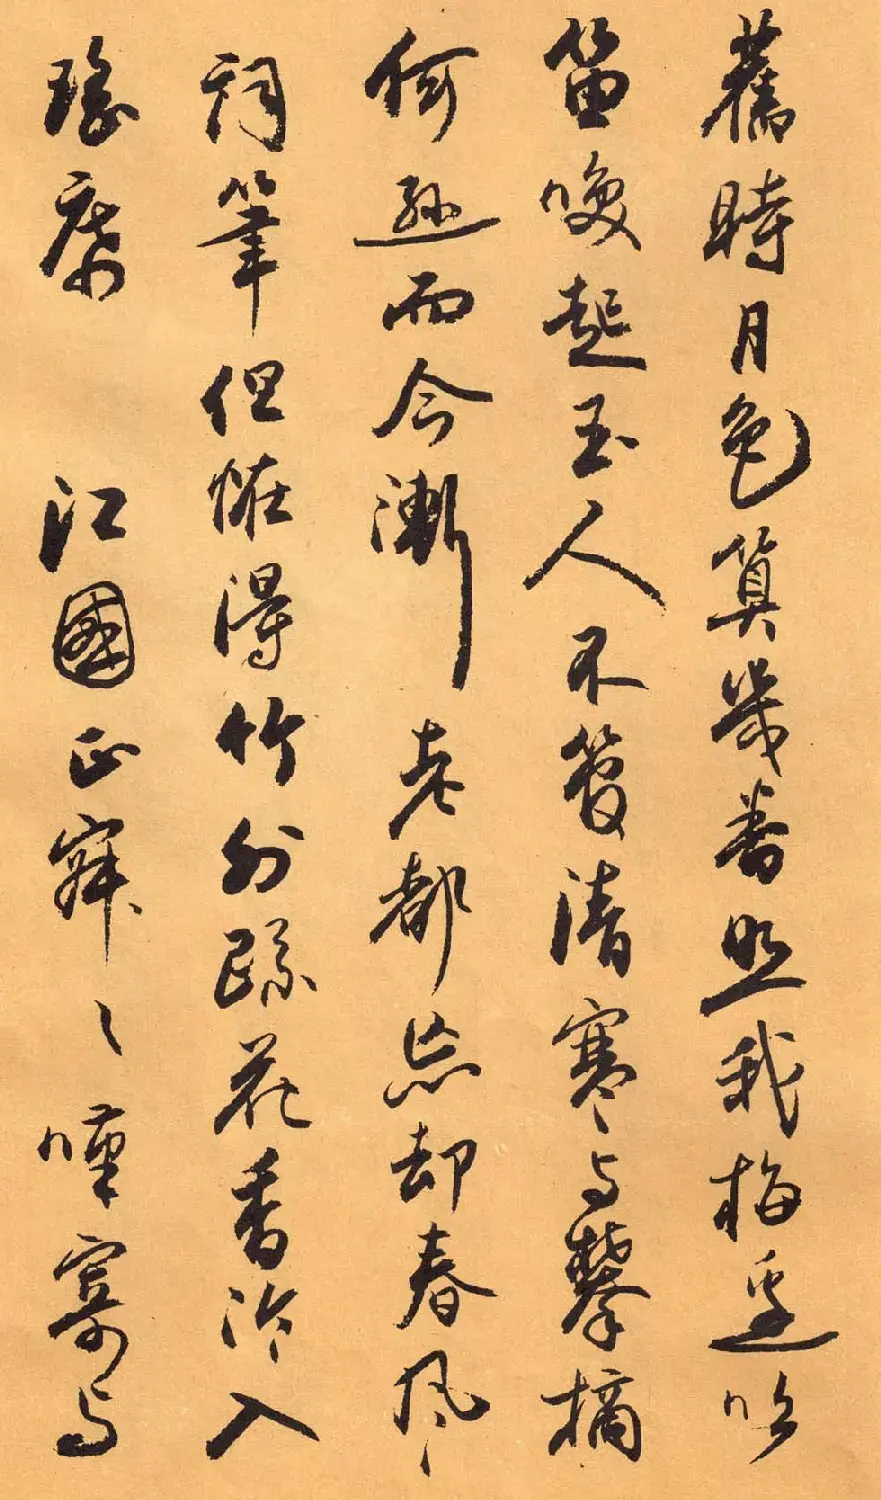 舊時月色算幾番照我梅邊吹
笛喚起玉人不管清寒與攀摘
何遜而今漸老都忘却春風
詞筆但怪得竹外疏花香冷入
瑤席江國正寂寂嘆寄與